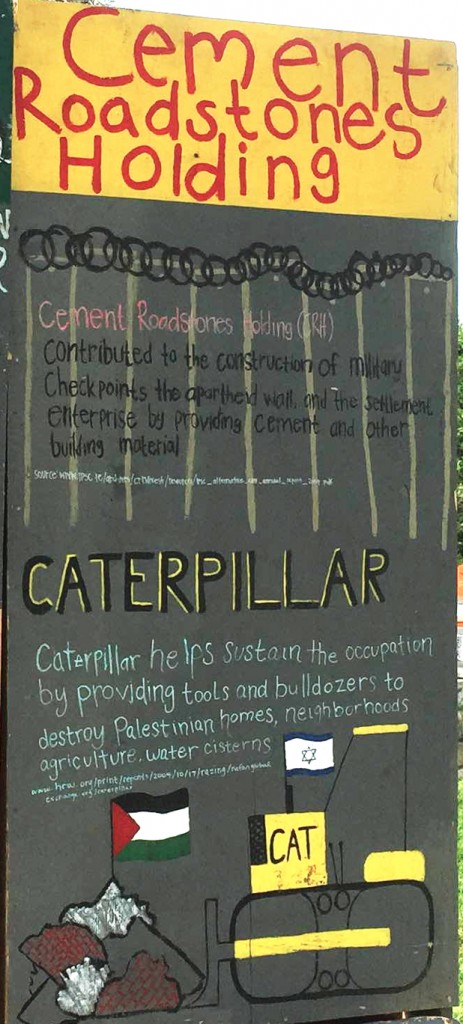 Cement
Roadstones
Holding
Cement Roadstones Holding (CRH)
Contributed to the construction of military
Checkpoints the apartheid wall, and the settlement
enterprise by providing cement and other
building material
CATERPILLAR
Caterpillar helps sustain the occupation
by providing tools and bulldozers to
destroy Palestinian homes, neighborhoods
agriculture, water cisterns
www.hrw.org/print/reports/2004/10/17/razing/rafah
CAT